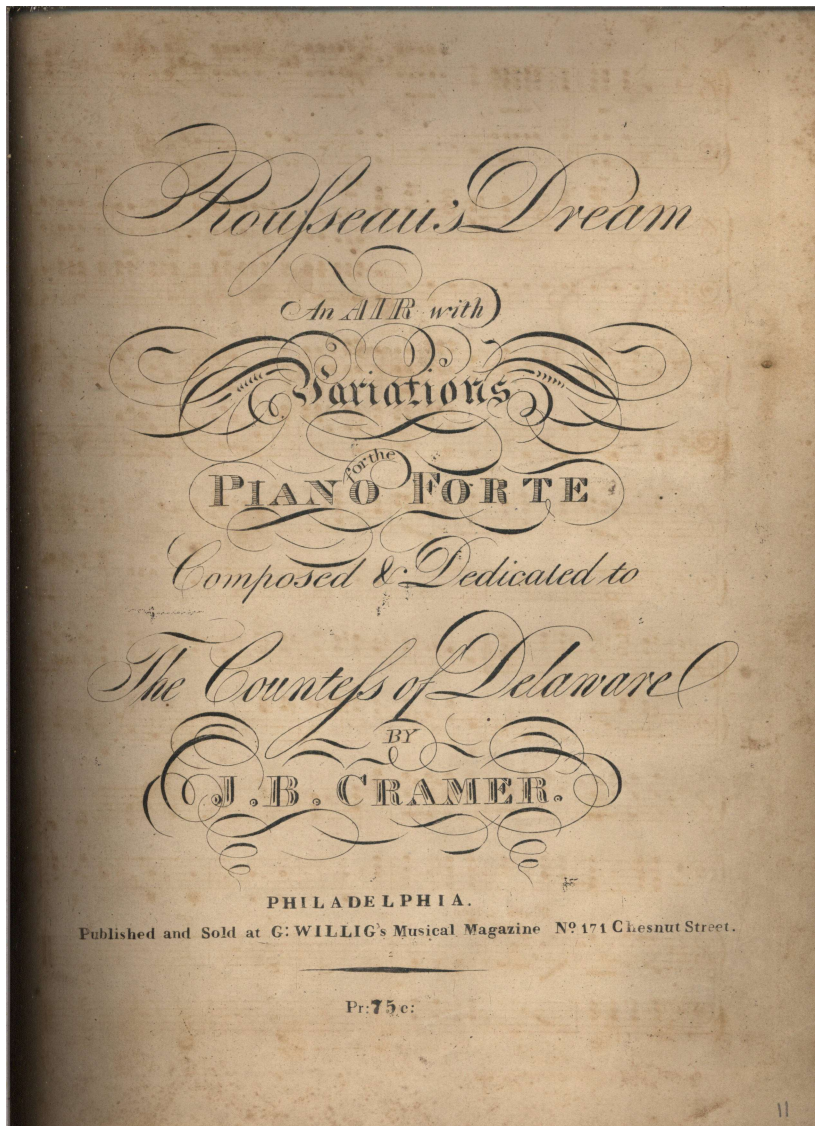 Rouſseau's Dream
An AIR with
Variations
for the
PIANO FORTE
Composed & Dedicated to
The Counteſs of Delaware
BY
J. B. CRAMER.
PHILADELPHIA.
Published and Sold at G: WILLIG's Musical Magazine Nº 171 Chesnut Street.
Pr: 75 c:
11